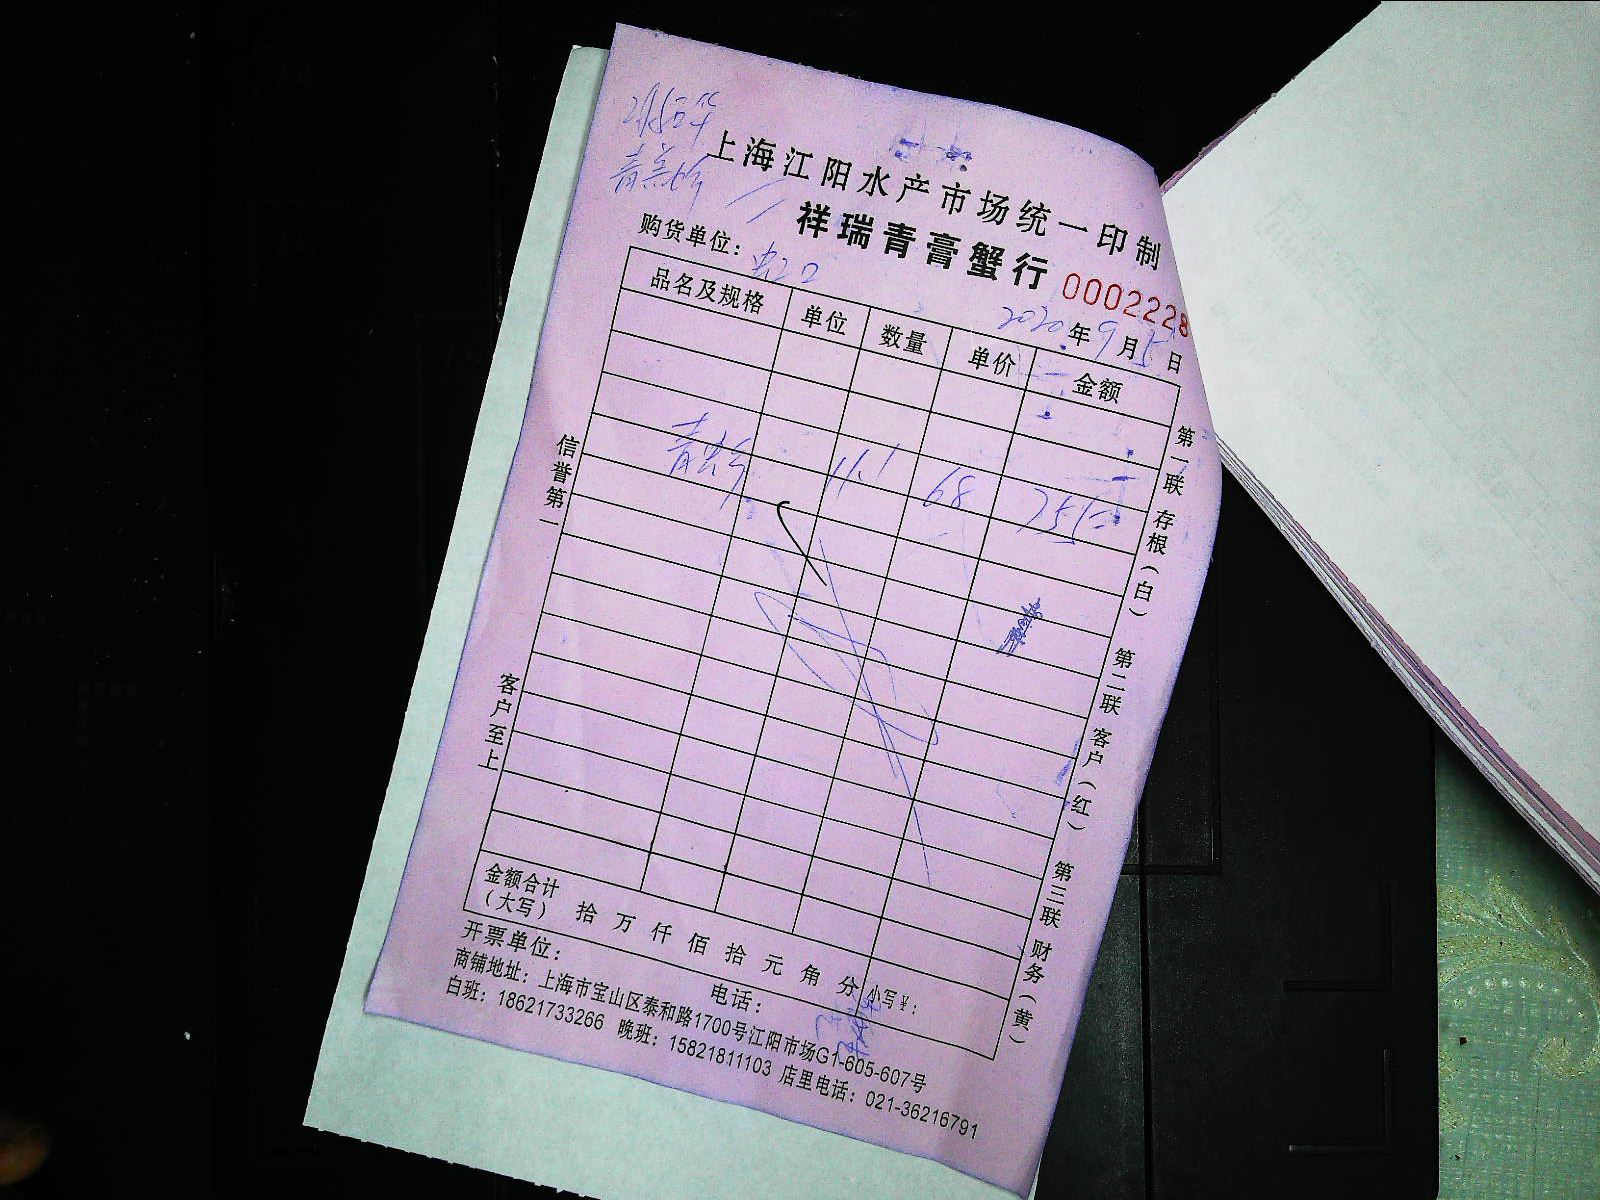 上海江阳水产市场统一印制
祥瑞青膏蟹行
0002228
购货单位：虹口
2020年9月5日
品名及规格 单位 数量 单价 金额
11.1 68 755
信誉第一
客户至上
第一联 存根（白） 第二联 客户（红） 第三联 财务（黄）
金额合计（大写） 拾 万 仟 佰 拾 元 角 分 小写￥：
开票单位： 电话：
商铺地址：上海市宝山区泰和路1700号江阳市场G1-605-607号
白班：18621733266 晚班：15821811103 店里电话：021-36216791